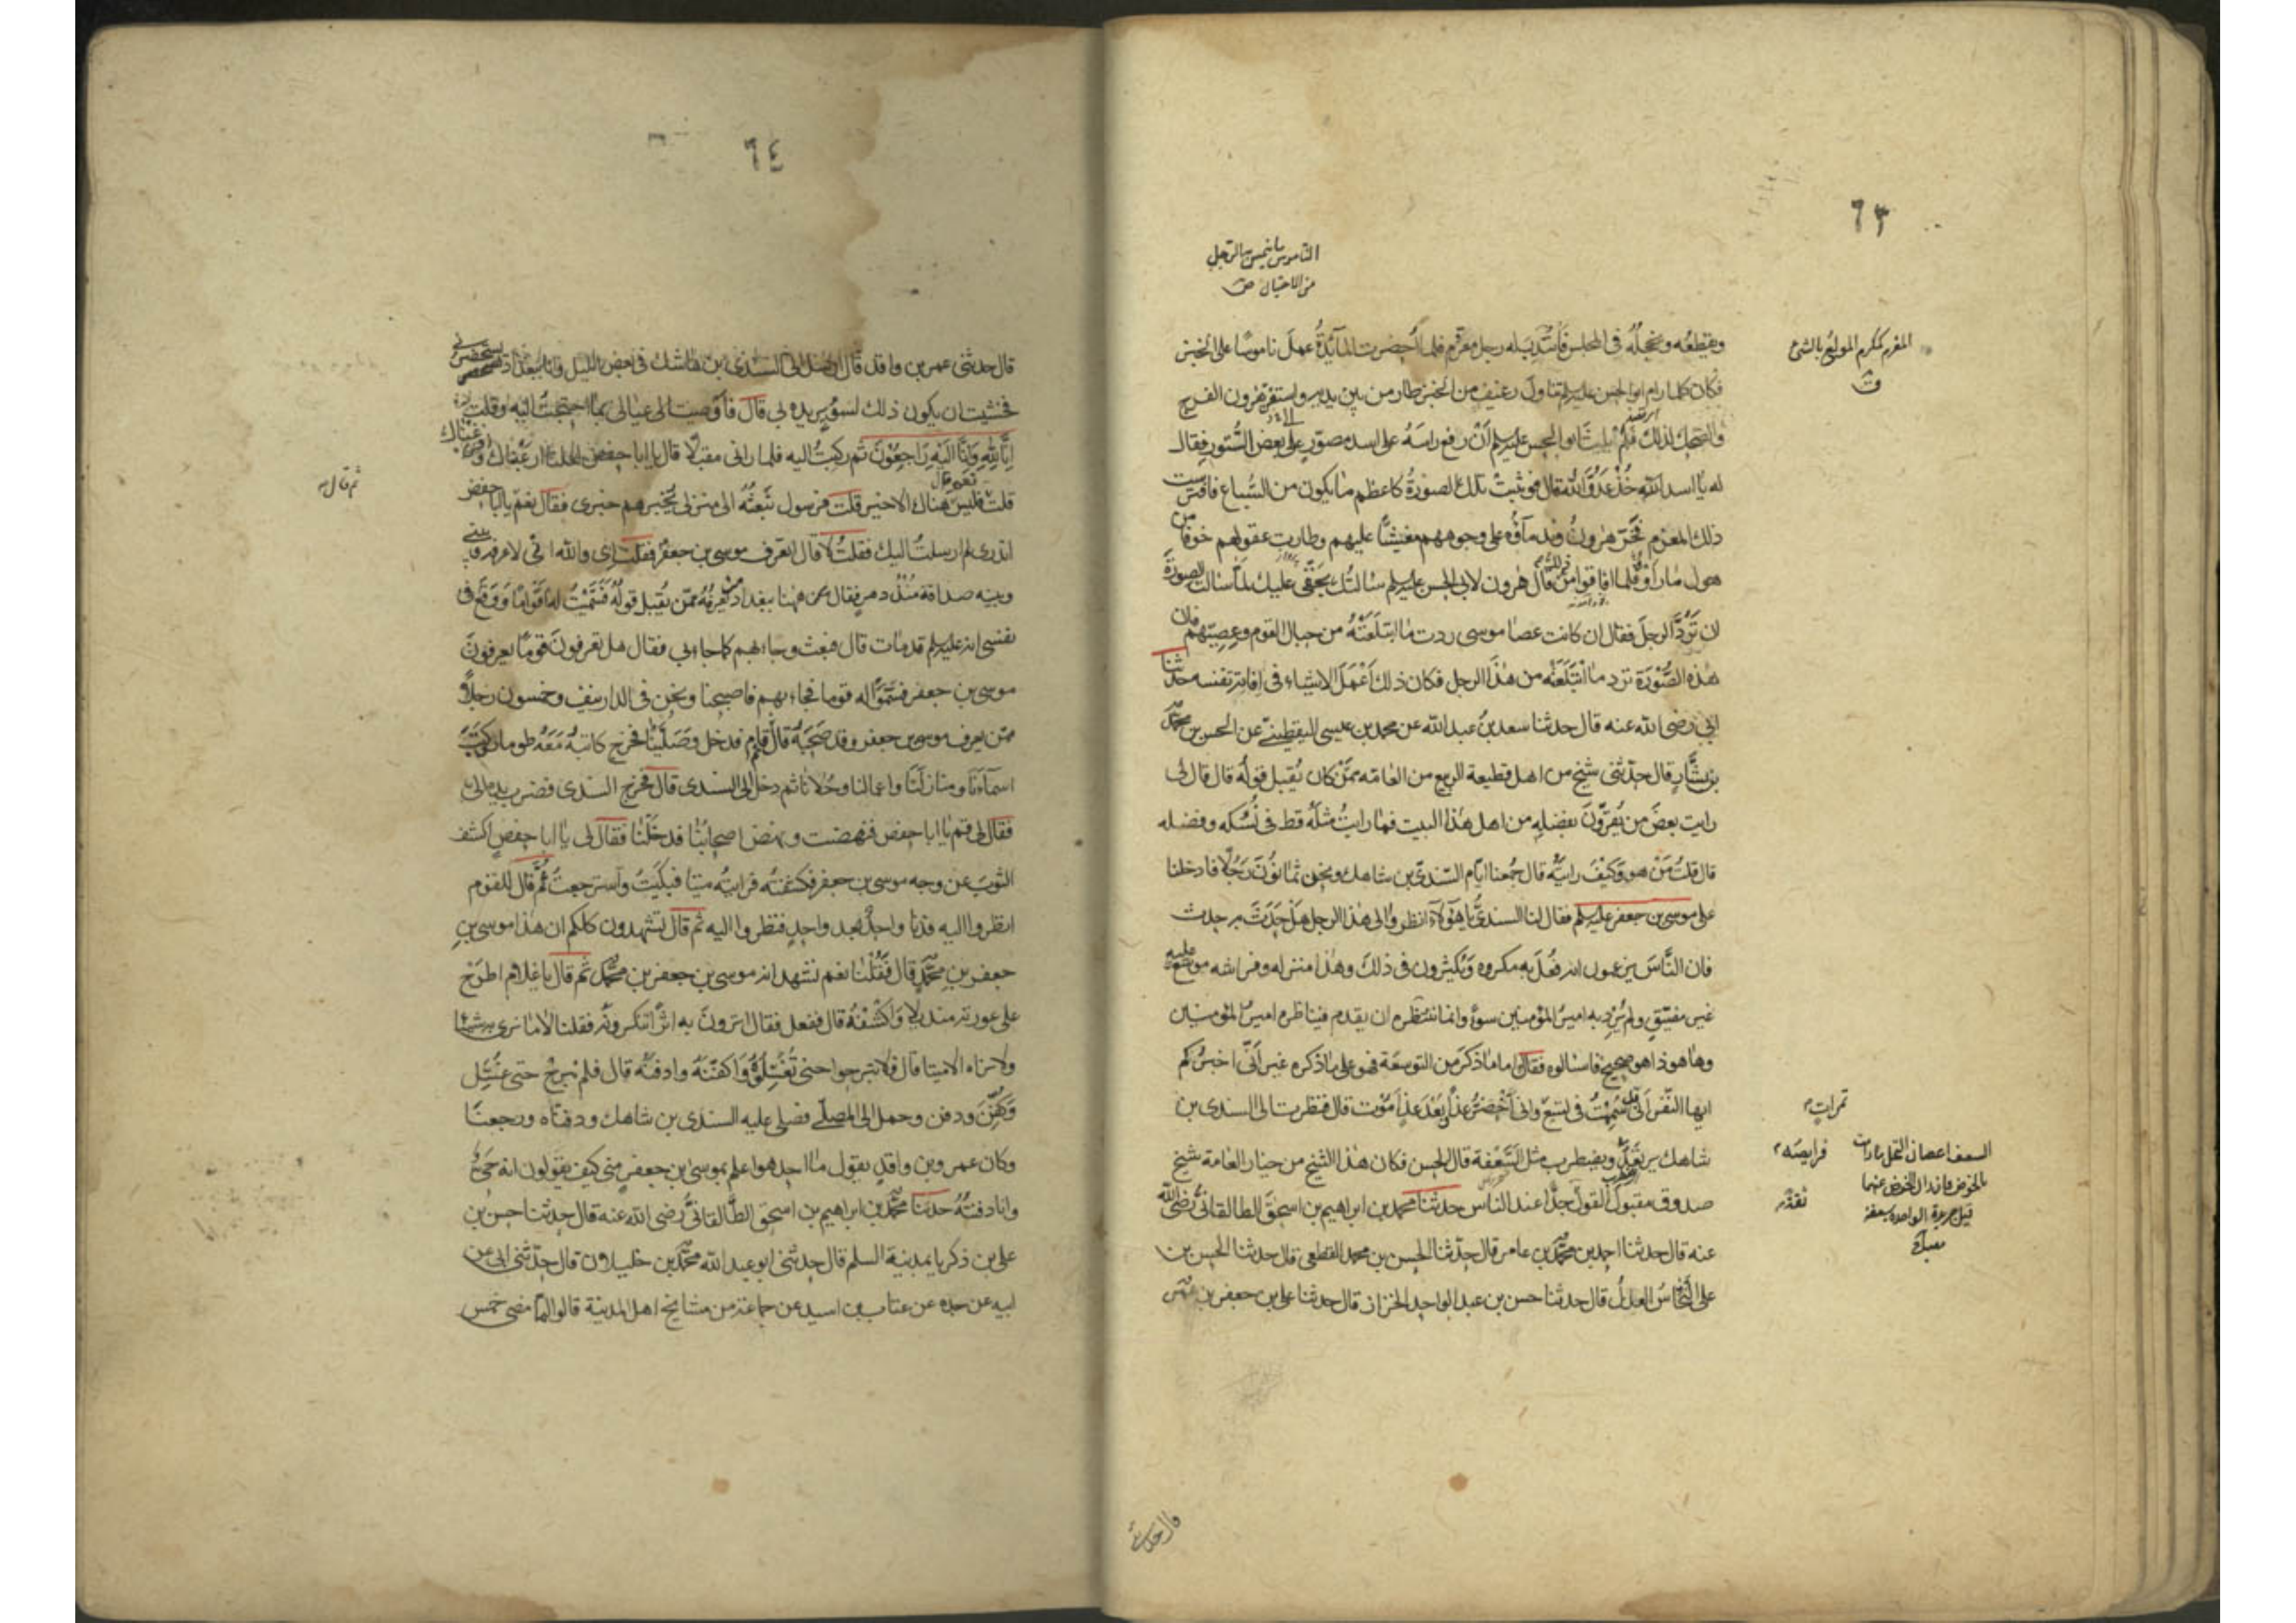 ٦٣
الناموس ما ينمس به الرجل
من الاحتيال ق
المغرم كمكرم المولع بالشئ
ق
ويقطعه ويخجله فى المجلس فانتدب له رجل معزم فلما أحضرت المآئدة عمل ناموسا على الخبز
فكان كلما رام ابو الحسن عليه السلم تناول رغيف من الخبز طار من بين يديه واستفز هرون الفرح
والضحك لذلك فلم يلبث ابو الحسن عليه السلم أن رفع راسه الى اسد مصور على بعض الستور فقال
له يا اسد الله خذ عدو الله قال فوثبت تلك الصورة كاعظم ما يكون من السباع فافترست
ذلك المعزم فخر هرون وندمآؤه على وجوههم مغشيا عليهم وطارت عقولهم خوفا من
هول ما رأوه فلما افاقوا من ذلك قال هرون لابى الحسن عليه السلم سالتك بحقى عليك لما سالت الصورة
ان ترد الرجل فقال ان كانت عصا موسى ردت ما ابتلعته من حبال القوم وعصيهم فان
هذه الصورة ترد ما ابتلعته من هذا الرجل فكان ذلك أعمل الاشياء فى افاتة نفسه حدثنا
ابى رضى الله عنه قال حدثنا سعد بن عبد الله عن محمد بن عيسى اليقطينى عن الحسن بن محمد
بن بشار قال حدثنى شيخ من اهل قطيعة الربيع من العامة ممن كان يقبل قوله قال قال لى
رايت بعض من يقرون بفضله من اهل هذا البيت فما رايت مثله قط فى نسكه وفضله
قال قلت من هو وكيف رايته قال جمعنا ايام السندى بن شاهك ونحن ثمانون رجلا فادخلنا
على موسى بن جعفر عليه السلم فقال لنا السندى يا هؤلآء انظروا الى هذا الرجل هل حدث به حدث
فان الناس يزعمون انه فعل به مكروه ويكثرون فى ذلك وهذا منزله وفراشه موسع عليه
غير مضيق ولم يرد به امير المؤمنين سوء وانما ننتظره ان يقدم فيناظره امير المؤمنين
وها هو ذا هو صحيح فاسئالوه فقال اما ما ذكر من التوسعة فهو على ما ذكره غير انى اخبركم
ايها النفر انى قد سممت فى تسع وانى أخضر غدا وبعد غد اموت قال فنظرت الى السندى بن
شاهك يرتعد ويضطرب مثل السعفة قال الحسن فكان هذا الشيخ من خيار العامة شيخ
صدوق مقبول القول جدا عند الناس حدثنا محمد بن ابراهيم بن اسحق الطالقانى رضى الله
عنه قال حدثنا احمد بن محمد بن عامر قال حدثنا الحسن بن محمد القطعى قال حدثنا الحسن بن
على النخاس العدل قال حدثنا حسن بن عبد الواحد الخزاز قال حدثنا على بن جعفر بن عمر
تمرات
السعف اغصان النخل ما دامت
بالخوص فان زال الخوص عنها
قيل جريدة الواحدة سعفة
قال حدثنى
٦٤
قال حدثنى عمر بن واقد قال ارسل الى السندى بن شاهك فى بعض الليل وانا ببغداد يستحضرنى
فخشيت ان يكون ذلك لسوء يريده بى قال فأوصيت الى عيالى بما احتجت اليه وقلت
انا لله وانا اليه راجعون ثم ركبت اليه فلما رانى مقبلا قال يا ابا حفص لعلنا ارعبناك وافزعناك
قلت نعم قال فليس هناك الا خير قلت فرسول تبعثه الى منزلى يخبرهم خبرى فقال نعم يا ابا حفص
ثم قال
اتدرى لم ارسلت اليك فقلت لا قال اتعرف موسى بن جعفر فقلت اى والله انى لاعرفه وبينى
وبينه صداقة منذ دهر فقال من ههنا ببغداد يعرفه ممن يقبل قوله فسميت له اقواما ووقع فى
نفسى انه عليه السلم قد مات قال فبعث وجاء بهم كما جاء بى فقال هل تعرفون قوما يعرفون
موسى بن جعفر فسموا له قوما فجاء بهم فاصبحنا ونحن فى الدار نيف وخمسون رجلا
ممن يعرف موسى بن جعفر وقد صحبه قال قام فدخل وصلينا فخرج كاتبه معه طومار فكتب
اسماءنا ومنازلنا واعمالنا وحلانا ثم دخل الى السندى قال فخرج السندى فضرب يده الى
فقال لى قم يا ابا حفص فنهضت ونهض اصحابنا فدخلنا فقال لى يا ابا حفص اكشف
الثوب عن وجه موسى بن جعفر فكشفته فرايته ميتا فبكيت واسترجعت ثم قال للقوم
انظروا اليه فدنا واحد بعد واحد فنظروا اليه ثم قال تشهدون كلكم ان هذا موسى بن
جعفر بن محمد قال فقلنا نعم نشهد انه موسى بن جعفر بن محمد ثم قال يا غلام اطرح
على عورته منديلا واكشفه قال ففعل فقال اترون به اثرا تنكرونه فقلنا لا ما نرى به شيئا
ولا نراه الا ميتا قال فلا تبرحوا حتى تغسلوه واكفنه وادفنه قال فلم نبرح حتى غسل
وكفن ودفن وحمل الى المصلى فصلى عليه السندى بن شاهك ودفناه ورجعنا
وكان عمرو بن واقد يقول ما احد هو اعلم بموسى بن جعفر منى كيف يقولون انه حى
وانا دفنته حدثنا محمد بن ابراهيم بن اسحق الطالقانى رضى الله عنه قال حدثنا حسن بن
على بن زكريا بمدينة السلم قال حدثنى ابو عبد الله محمد بن خليلان قال حدثنى ابى عن
ابيه عن جده عن عتاب بن اسيد عن جماعة من مشايخ اهل المدينة قالوا لما مضى خمس